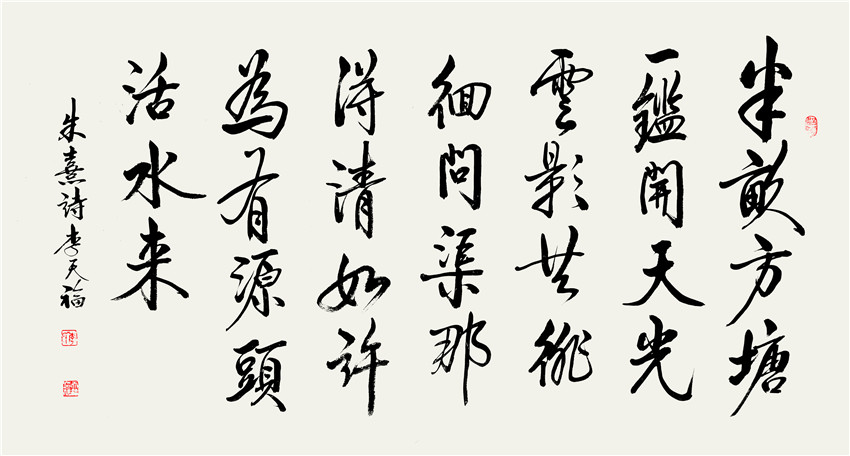 半畝方塘
一鑑開天光
雲影共徘
徊問渠那
得清如許
為有源頭
活水来
朱熹詩李天福